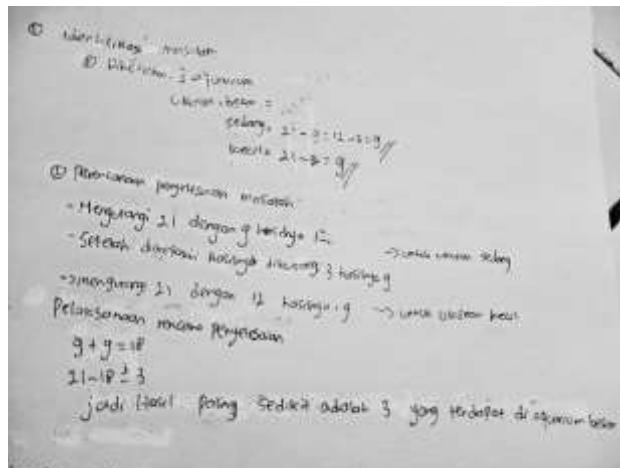 ① Identifikasi masalah
① Diketahui 3 aquarium
Ukuran besar =
sedang = 21 - 9 = 12 - 3 = 9 //
21 - = 9 //
② Perencanaan penyelesaian masalah
- Mengurangi 21 dengan 9 hasilnya 12
-> untuk ukuran sedang
- Setelah hasilnya dikurangi 3 hasilnya 9
-> mengurangi 21 dengan 12 hasilnya 9 -> untuk ukuran
Pelaksanaan rencana Penyelesaian
9 + 9 = 18
21 - 18 = 3
jadi Hasil paling sedikit adalah 3 yang terdapat di aquarium besar